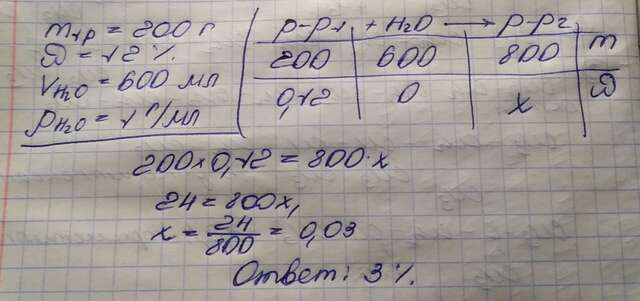 m1р = 200 г
ω = 12 %
VH2O = 600 мл
ρH2O = 1 г/мл
р-р1 + H2O ⟶ р-р2
200 600 800 m
0,12 0 x ω
200×0,12 = 800·x
24 = 800x,
x = 24/800 = 0,03
Ответ: 3 %.